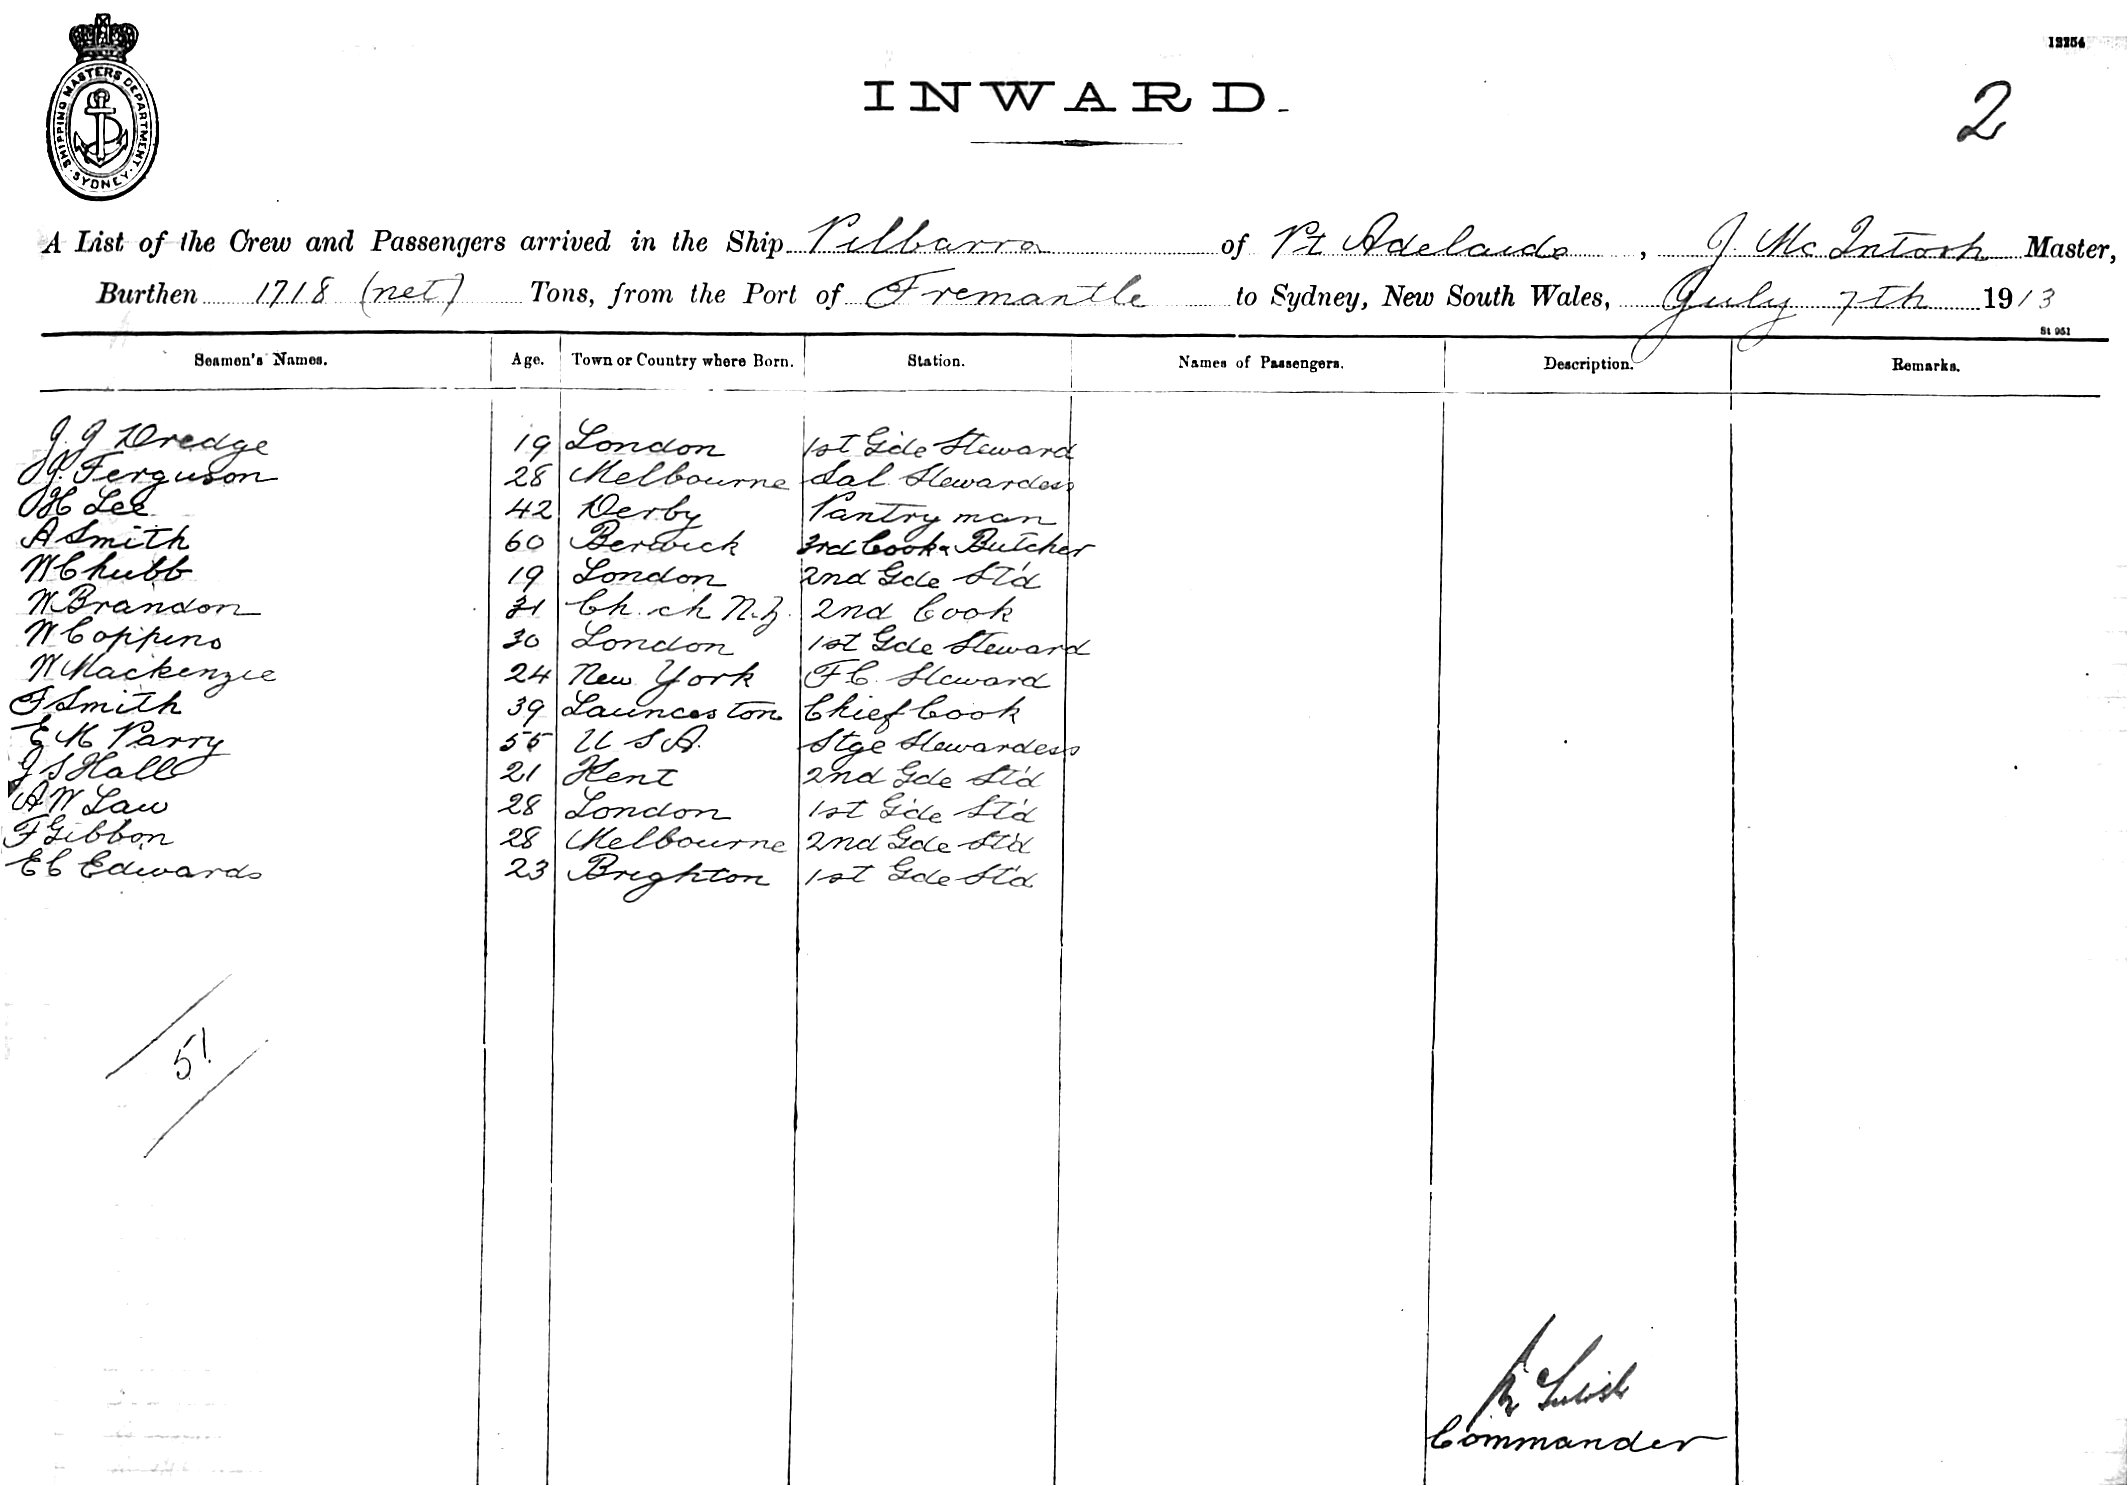 12254
INWARD.
2
SHIPPING MASTERS DEPARTMENT
SYDNEY
A List of the Crew and Passengers arrived in the Ship Pilbarra of Pt Adelaide, J. Mc Intosh Master,
Burthen 1718 (net) Tons, from the Port of Fremantle to Sydney, New South Wales, July 7th 1913
St 951
Seamen's Names. Age. Town or Country where Born. Station. Names of Passengers. Description. Remarks.
J. J Dredge 19 London 1st Gde Steward
J. Ferguson 28 Melbourne Sal. Stewardess
H Lee 42 Derby Pantry man
A Smith 60 Berwick 3rd Cook & Butcher
W Chubb 19 London 2nd Gde St'd
W Brandon 31 Ch. ch N.Z. 2nd Cook
W Coppins 30 London 1st Gde Steward
W Mackenzie 24 New York F C. Steward
F Smith 39 Launceston Chief Cook
E M Parry 55 U S A. Stge Stewardess
J S Hall 21 Kent 2nd Gde St'd
A W Law 28 London 1st Gde St'd
F Gibbon 28 Melbourne 2nd Gde St'd
E C Edwards 23 Brighton 1st Gde St'd
51
Commander